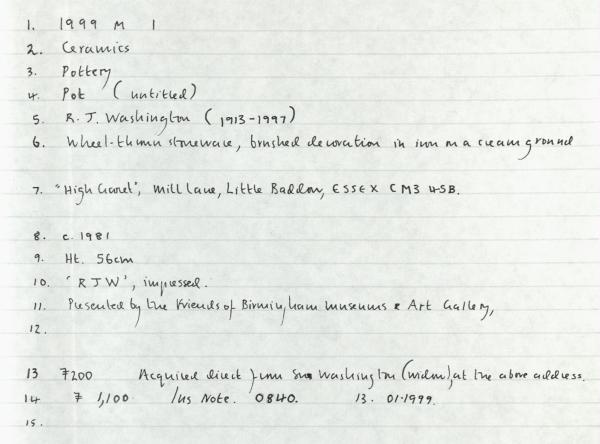 1. 1999 M 1
2. Ceramics
3. Pottery
4. Pot (untitled)
5. R. J. Washington (1913-1997)
6. Wheel-thrown stoneware, brushed decoration in iron on a cream ground
7. "High Garret", Mill Lane, Little Baddow, ESSEX CM3 4SB.
8. c. 1981
9. Ht. 56cm
10. 'RJW', impressed.
11. Presented by the Friends of Birmingham Museums & Art Gallery,
12.
13 £200 Acquired direct from Washington (widow), at the above address.
14 £ 1,100 Ins Note. 0840. 13. 01.1999.
15.